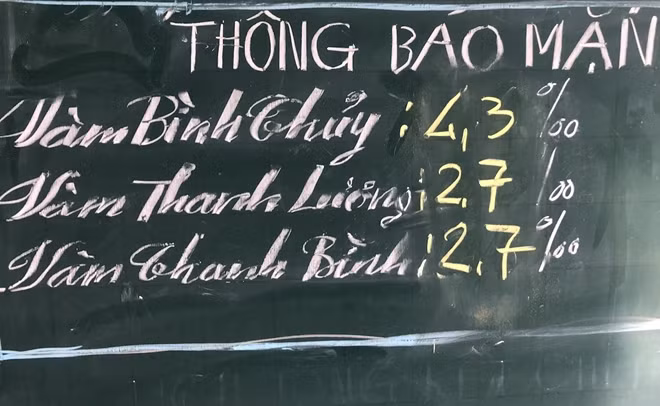 THÔNG BÁO MẶN
Vàm Bình Thủy : 4,3 ‰
Vàm Thanh Lương : 2,7 ‰
Vàm Thanh Bình : 2,7 ‰